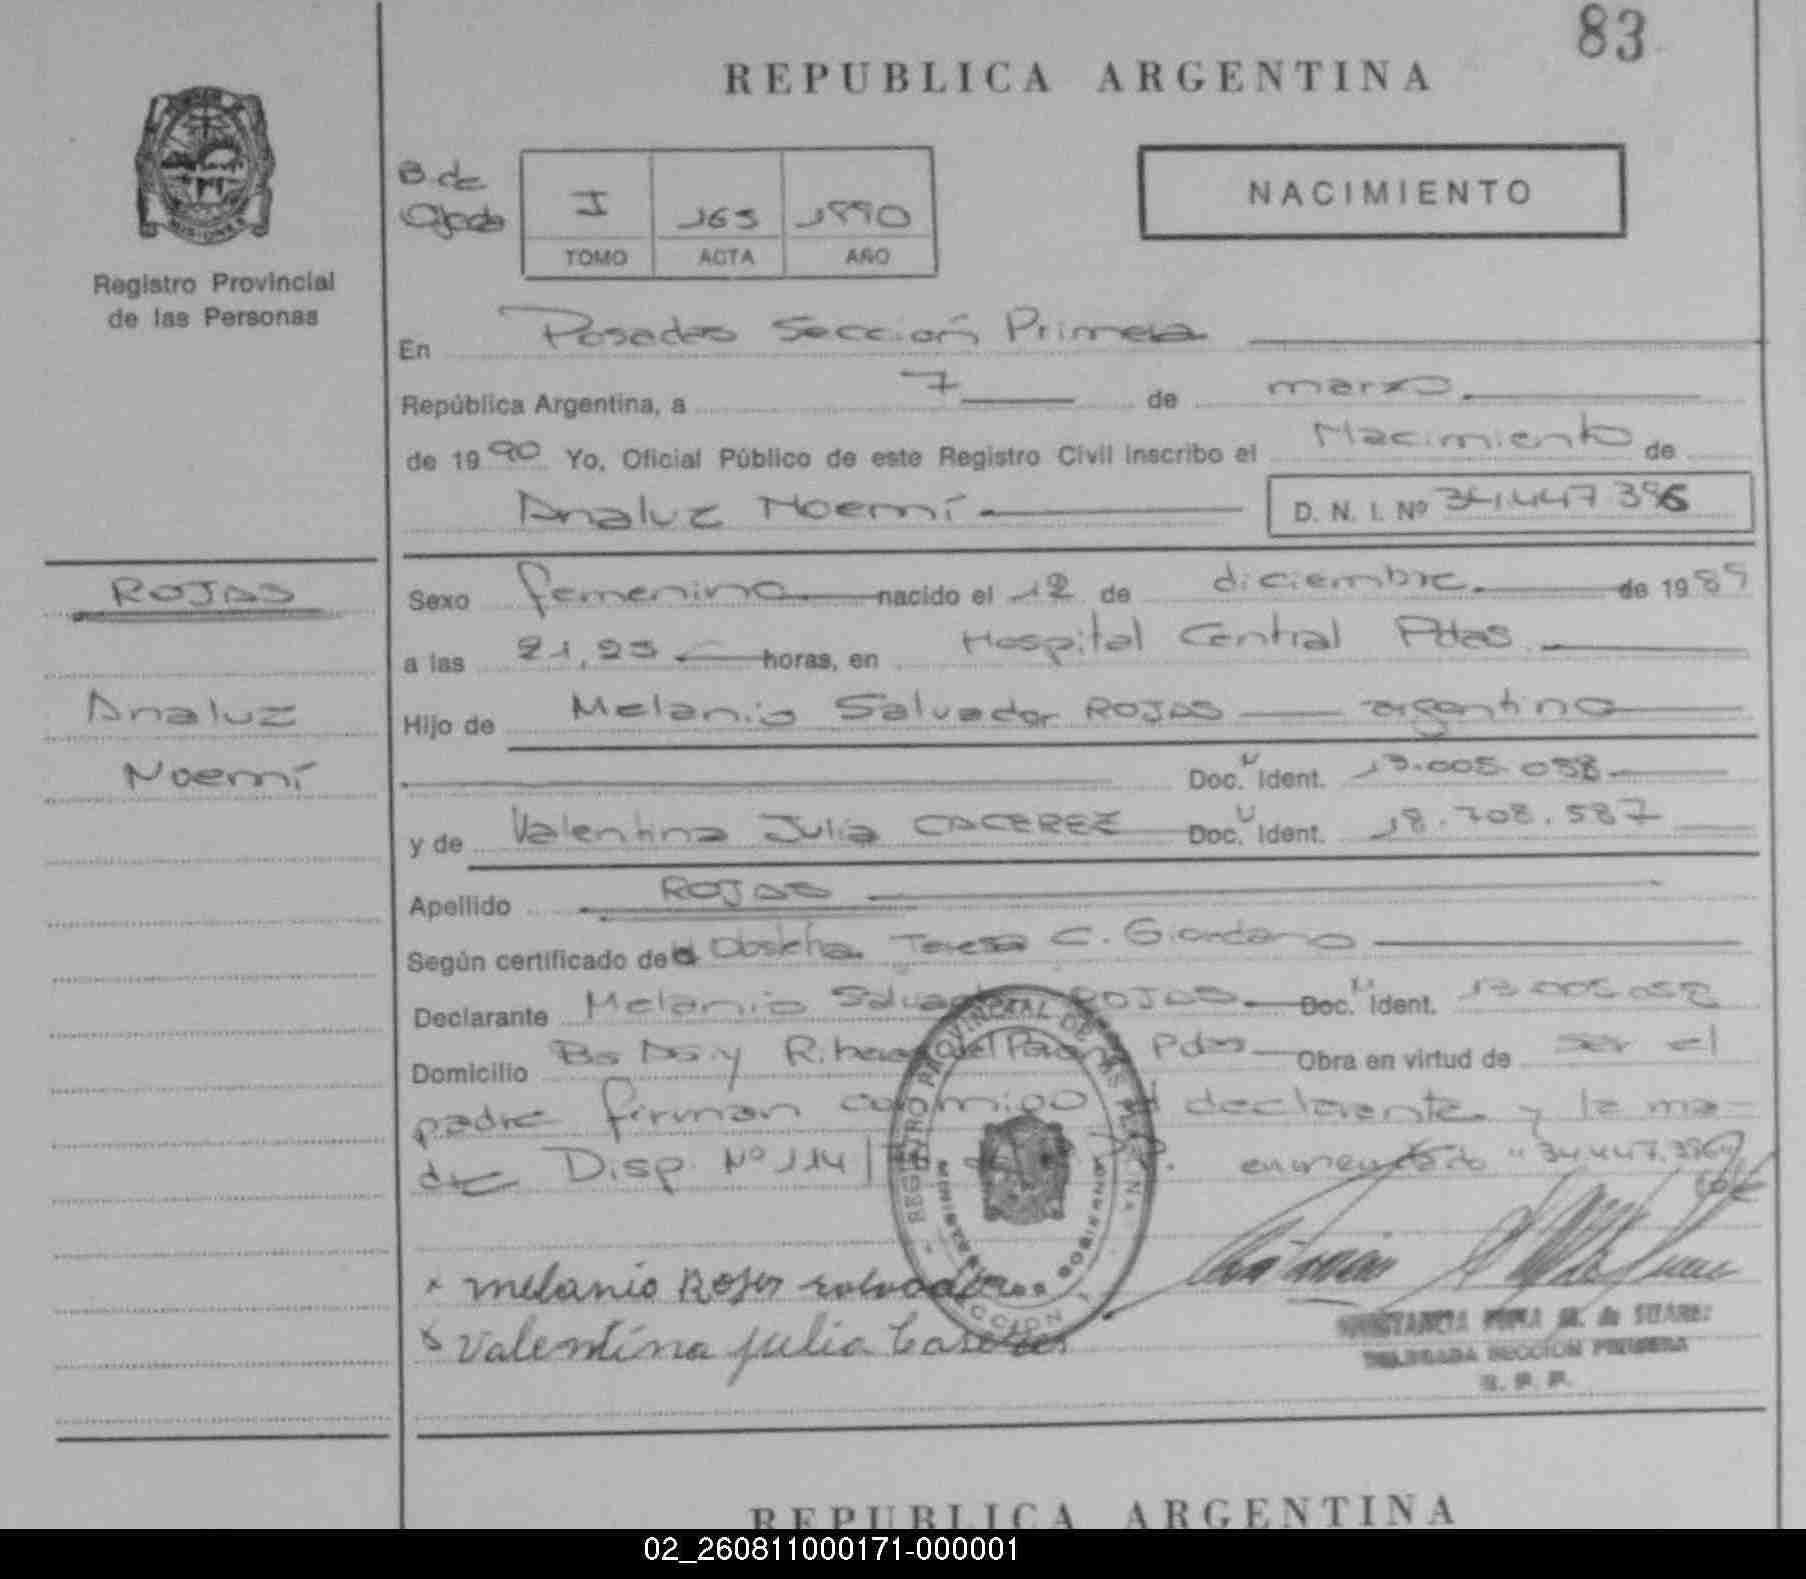 83
REPUBLICA ARGENTINA
Registro Provincial
de las Personas
B. de
Ojeda
I 165 1990
TOMO ACTA AÑO
NACIMIENTO
En Posadas Sección Primera
República Argentina, a 7 de marzo
de 1990 Yo, Oficial Público de este Registro Civil inscribo el Nacimiento de
Analuz Noemí D. N. I. Nº 34.447.396
ROJAS
Analuz
Noemí
Sexo femenino nacido el 12 de diciembre de 1989
a las 21,25 horas, en Hospital Central Pdas
Hijo de Melanio Salvador ROJAS argentino
Doc. Ident.
y de Valentina Julia CACEREZ Doc. Ident. 18.708.587
Apellido ROJAS
Según certificado de Obstetra Teresa C. Giordano
Declarante Melanio Salvador ROJAS Doc. Ident.
Domicilio Pdas Obra en virtud de ser el
padre firman conmigo el declarante y la ma-
dre Disp. Nº 114 enmendado "34.447.396"
REGISTRO PROVINCIAL DE LAS PERSONAS
MINISTERIO DE GOBIERNO
SECCION 1
x melanio Rojas salvador
x Valentina julia
DELEGADA SECCION PRIMERA
R. P. P.
REPUBLICA ARGENTINA
02_260811000171-000001